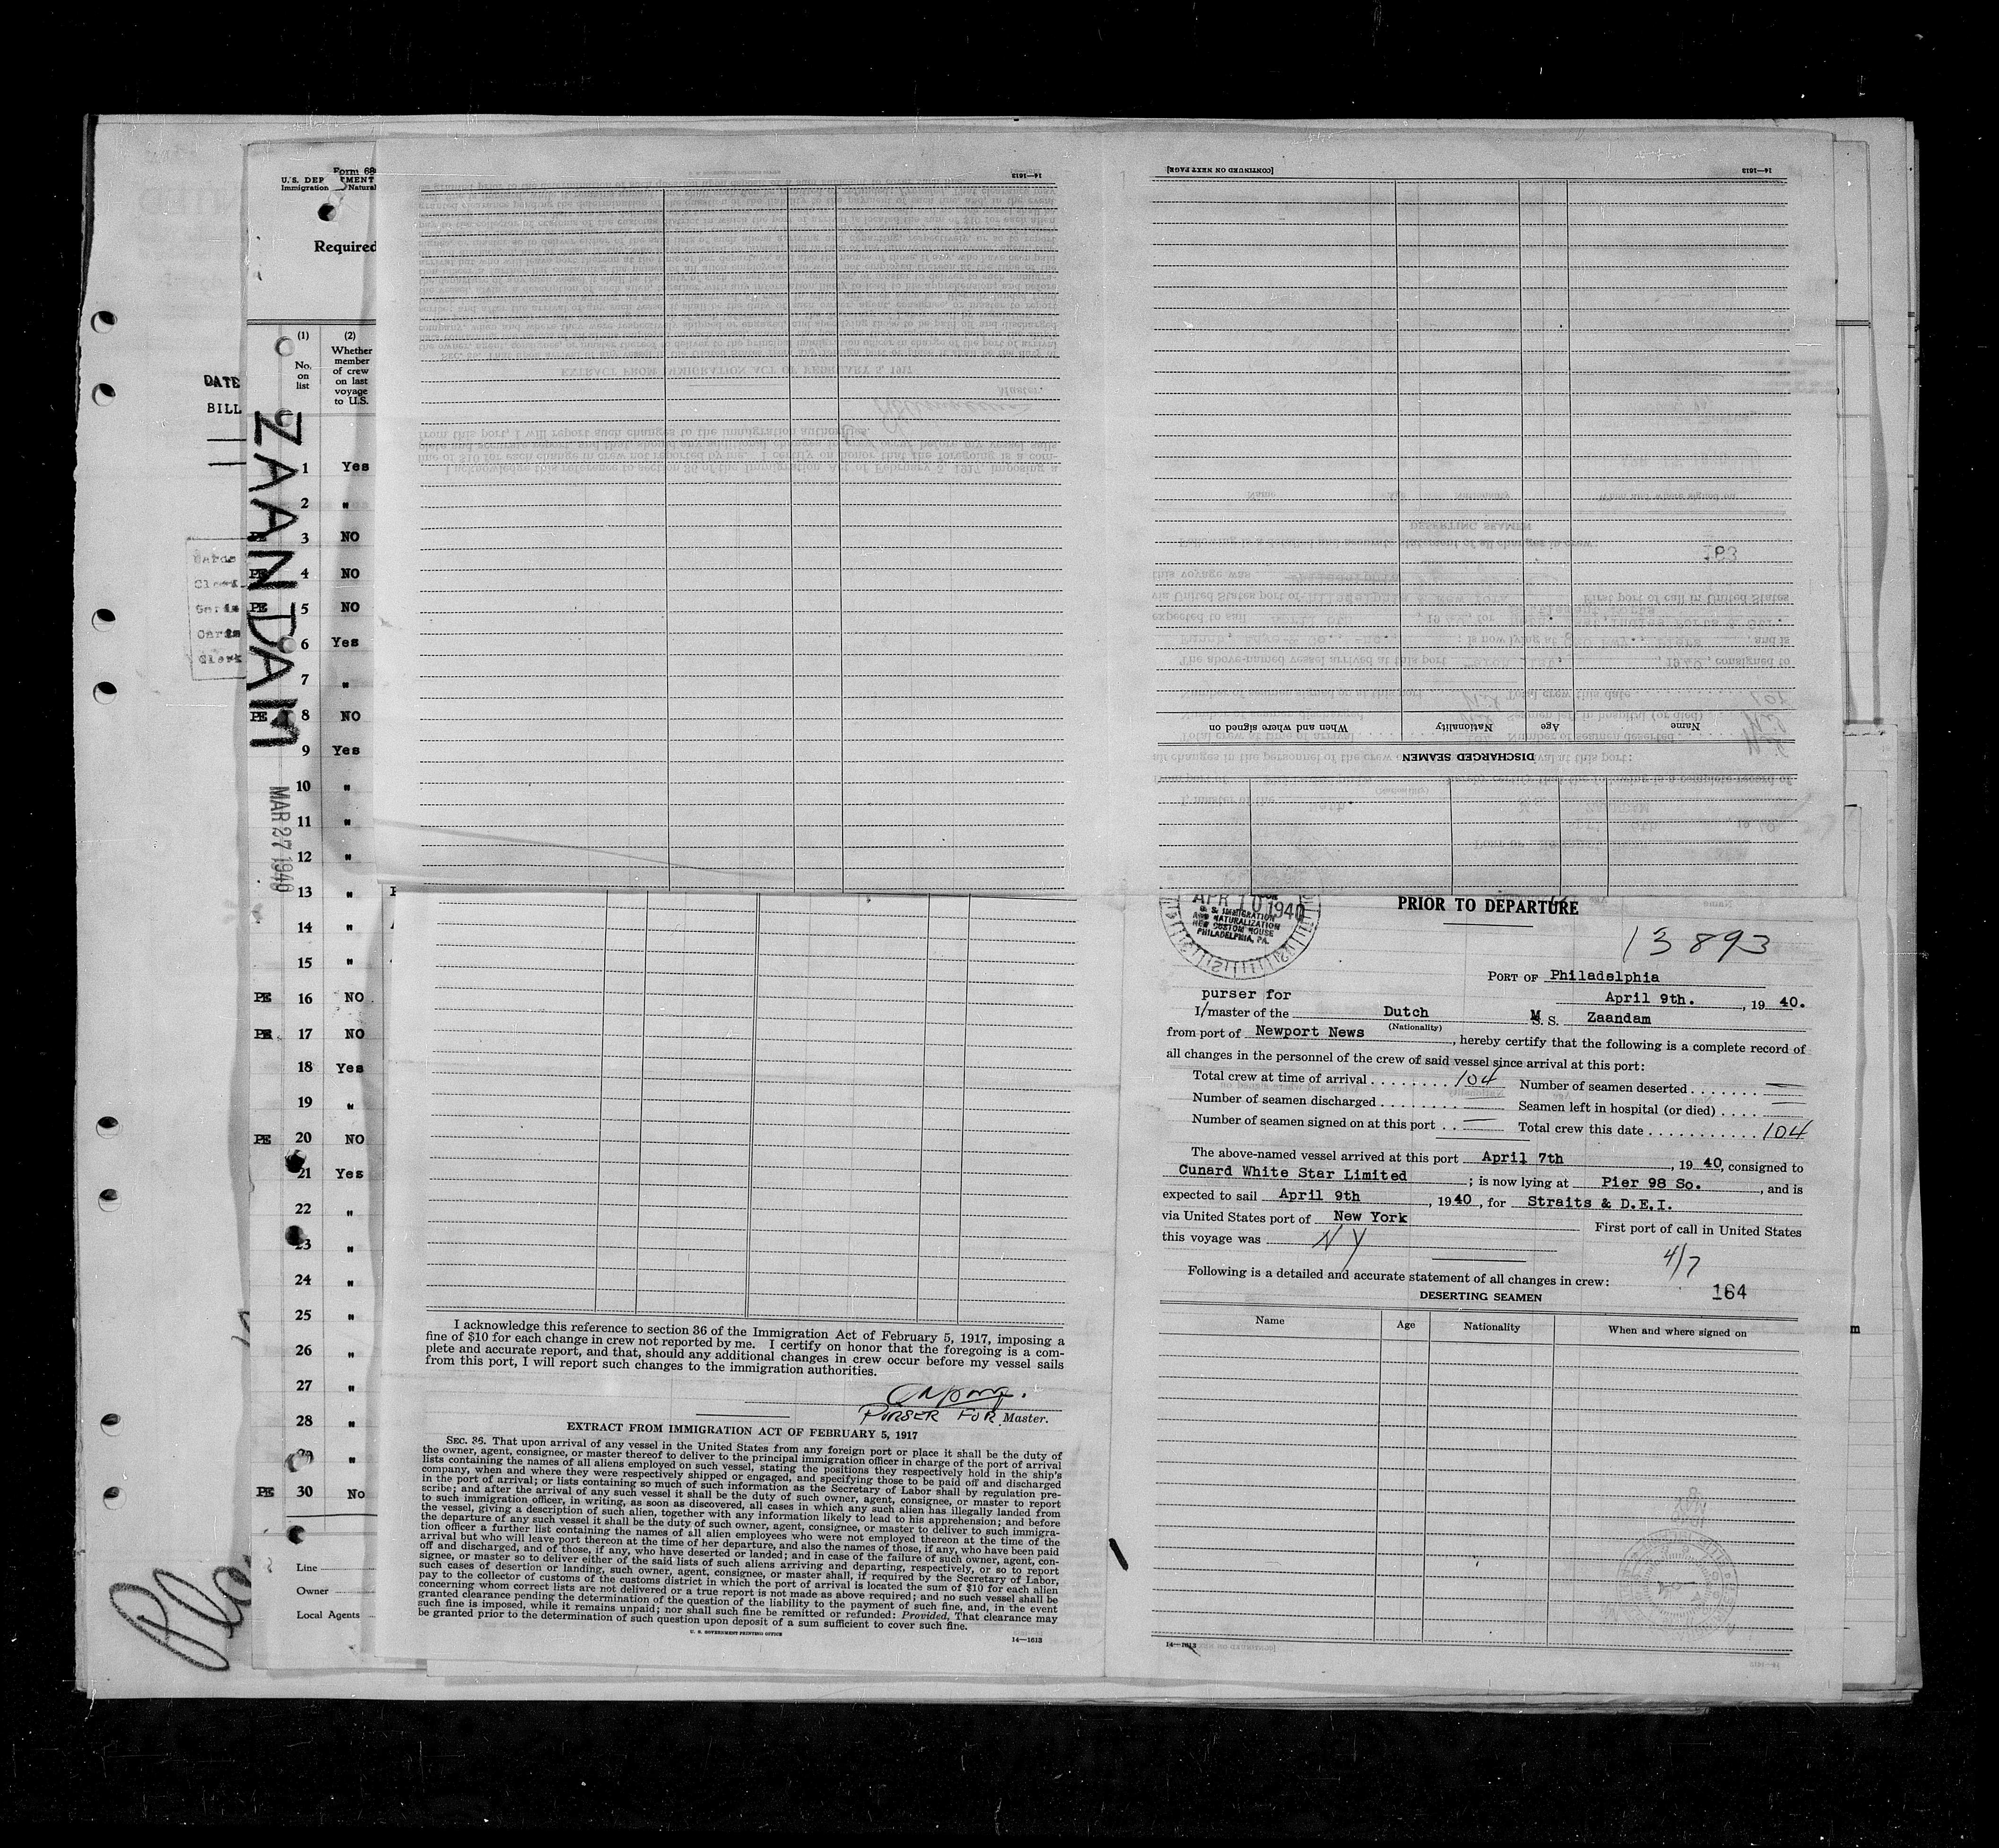 Form 68
U.S. DEP MENT
Immigration Natural
Required
(1) (2)
No. on list
Whether member of crew on last voyage to U.S.
DATE
BILL
ZAANDAM
MAR 27 1940
Cards
Clerk
Cards
Clerk
1 Yes
2 "
PE 3 NO
PE 4 NO
PE 5 NO
6 Yes
7 "
PE 8 NO
9 Yes
10 "
11 "
12 "
13 "
14 "
15 "
PE 16 NO
PE 17 NO
18 Yes
19 "
PE 20 NO
21 Yes
22 "
23 "
24 "
25 "
26 "
27 "
28 "
29 "
PE 30 No
Line
Owner
Local Agents
14—1613
[CONTINUED ON NEXT PAGE]
14—1613
183
When and where signed on Nationality Age Name
DISCHARGED SEAMEN
APR 10 1940
U. S. IMMIGRATION
AND NATURALIZATION
NEW CUSTOM HOUSE
PHILADELPHIA, PA.
PRIOR TO DEPARTURE
13893
PORT OF Philadelphia
April 9th. , 19 40.
purser for
I/master of the Dutch M S. S. Zaandam
(Nationality)
from port of Newport News , hereby certify that the following is a complete record of
all changes in the personnel of the crew of said vessel since arrival at this port:
Total crew at time of arrival 104 Number of seamen deserted —
Number of seamen discharged — Seamen left in hospital (or died) —
Number of seamen signed on at this port — Total crew this date 104
The above-named vessel arrived at this port April 7th , 19 40, consigned to
Cunard White Star Limited ; is now lying at Pier 98 So. , and is
expected to sail April 9th , 1940 , for Straits & D.E.I.
via United States port of New York First port of call in United States
this voyage was NY
4/7
Following is a detailed and accurate statement of all changes in crew:
164
DESERTING SEAMEN
Name Age Nationality When and where signed on
14—1613
I acknowledge this reference to section 36 of the Immigration Act of February 5, 1917, imposing a
fine of $10 for each change in crew not reported by me. I certify on honor that the foregoing is a com-
plete and accurate report, and that, should any additional changes in crew occur before my vessel sails
from this port, I will report such changes to the immigration authorities.
PURSER FOR Master.
EXTRACT FROM IMMIGRATION ACT OF FEBRUARY 5, 1917
SEC. 36. That upon arrival of any vessel in the United States from any foreign port or place it shall be the duty of
the owner, agent, consignee, or master thereof to deliver to the principal immigration officer in charge of the port of arrival
lists containing the names of all aliens employed on such vessel, stating the positions they respectively hold in the ship's
company, when and where they were respectively shipped or engaged, and specifying those to be paid off and discharged
in the port of arrival; or lists containing so much of such information as the Secretary of Labor shall by regulation pre-
scribe; and after the arrival of any such vessel it shall be the duty of such owner, agent, consignee, or master to report
to such immigration officer, in writing, as soon as discovered, all cases in which any such alien has illegally landed from
the vessel, giving a description of such alien, together with any information likely to lead to his apprehension; and before
the departure of any such vessel it shall be the duty of such owner, agent, consignee, or master to deliver to such immigra-
tion officer a further list containing the names of all alien employees who were not employed thereon at the time of the
arrival but who will leave port thereon at the time of her departure, and also the names of those, if any, who have been paid
off and discharged, and of those, if any, who have deserted or landed; and in case of the failure of such owner, agent, con-
signee, or master so to deliver either of the said lists of such aliens arriving and departing, respectively, or so to report
such cases of desertion or landing, such owner, agent, consignee, or master shall, if required by the Secretary of Labor,
pay to the collector of customs of the customs district in which the port of arrival is located the sum of $10 for each alien
concerning whom correct lists are not delivered or a true report is not made as above required; and no such vessel shall be
granted clearance pending the determination of the question of the liability to the payment of such fine, and, in the event
such fine is imposed, while it remains unpaid; nor shall such fine be remitted or refunded: Provided, That clearance may
be granted prior to the determination of such question upon deposit of a sum sufficient to cover such fine.
U. S. GOVERNMENT PRINTING OFFICE
14—1613